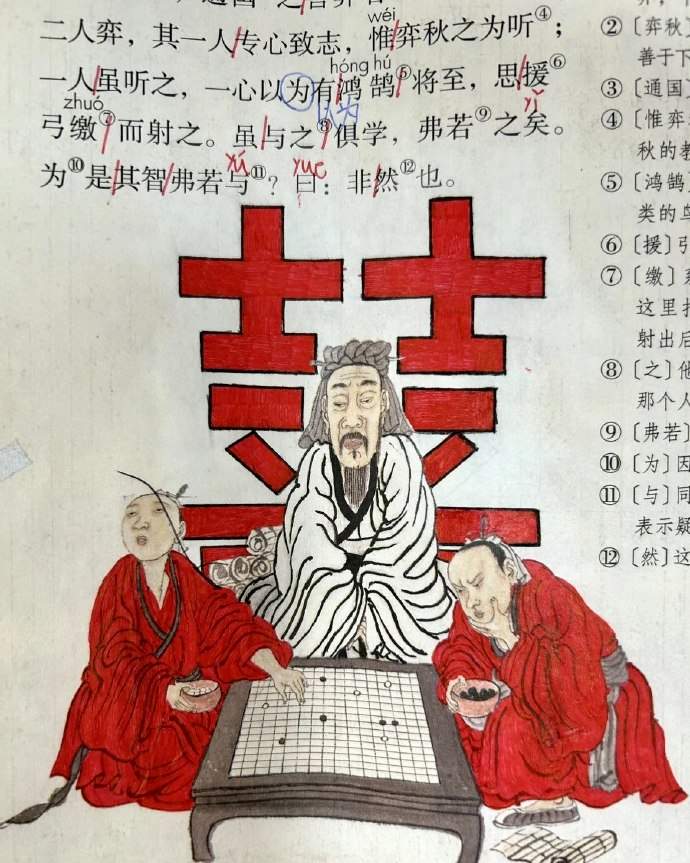 wéi
二人弈，其一人专心致志，惟弈秋之为听④；
hóng hú
一人虽听之，一心以为有鸿鹄⑤将至，思援⑥
zhuó
yǐ
弓缴⑦而射之。虽与之⑧俱学，弗若⑨之矣。
yú yuē
为⑩是其智弗若与⑪？曰：非然⑫也。
囍
②〔弈秋
善于下
③〔通国
④〔惟弈
秋的教
⑤〔鸿鹄〕
类的鸟
⑥〔援〕引
⑦〔缴〕
这里指
射出后
⑧〔之〕他
那个人
⑨〔弗若〕
⑩〔为〕因
⑪〔与〕同
表示疑
⑫〔然〕这